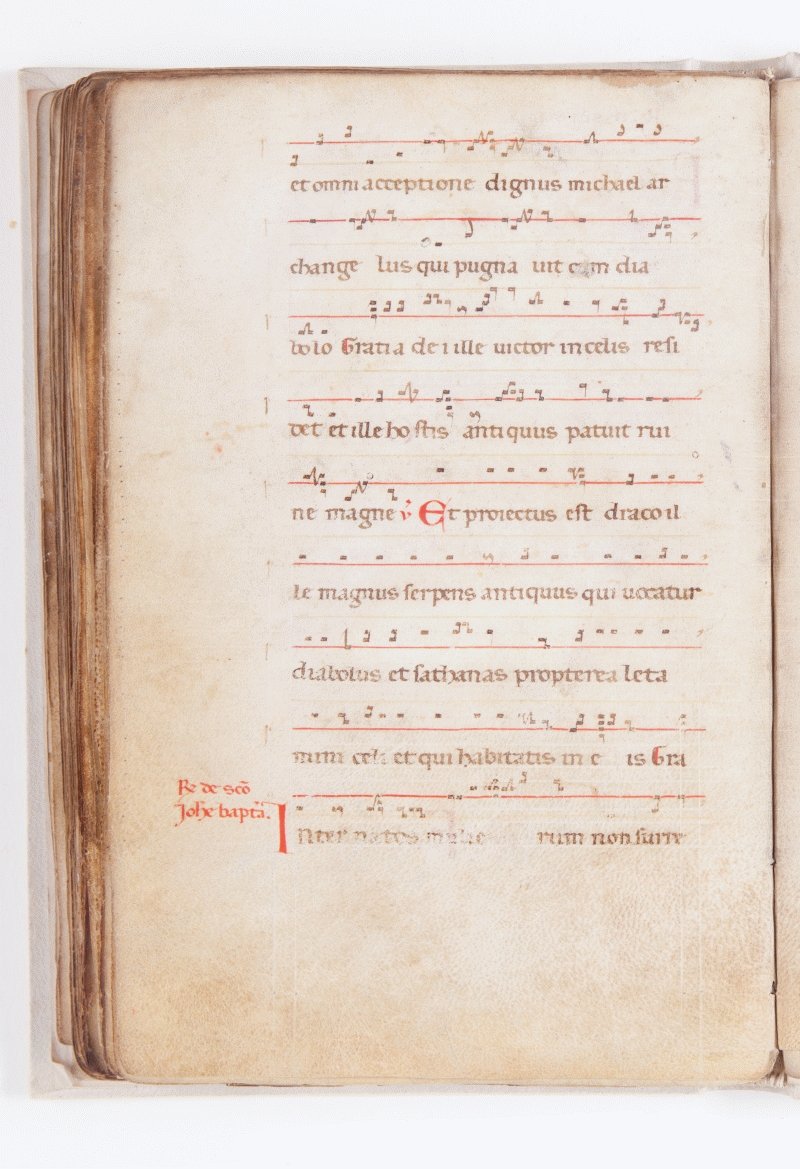 et omni acceptione dignus michael ar
change lus qui pugna uit cum dia
bolo Gratia dei ille uictor in celis resi
det et ille hostis antiquus patuit rui
ne magne v̇ Et proiectus est draco il
le magnus serpens antiquus qui uocatur
diabolus et sathanas propterea leta
mini celi et qui habitatis in e is Gra
Re de sc̄o
Johe bapta.
Inter natos mulie rum non surre